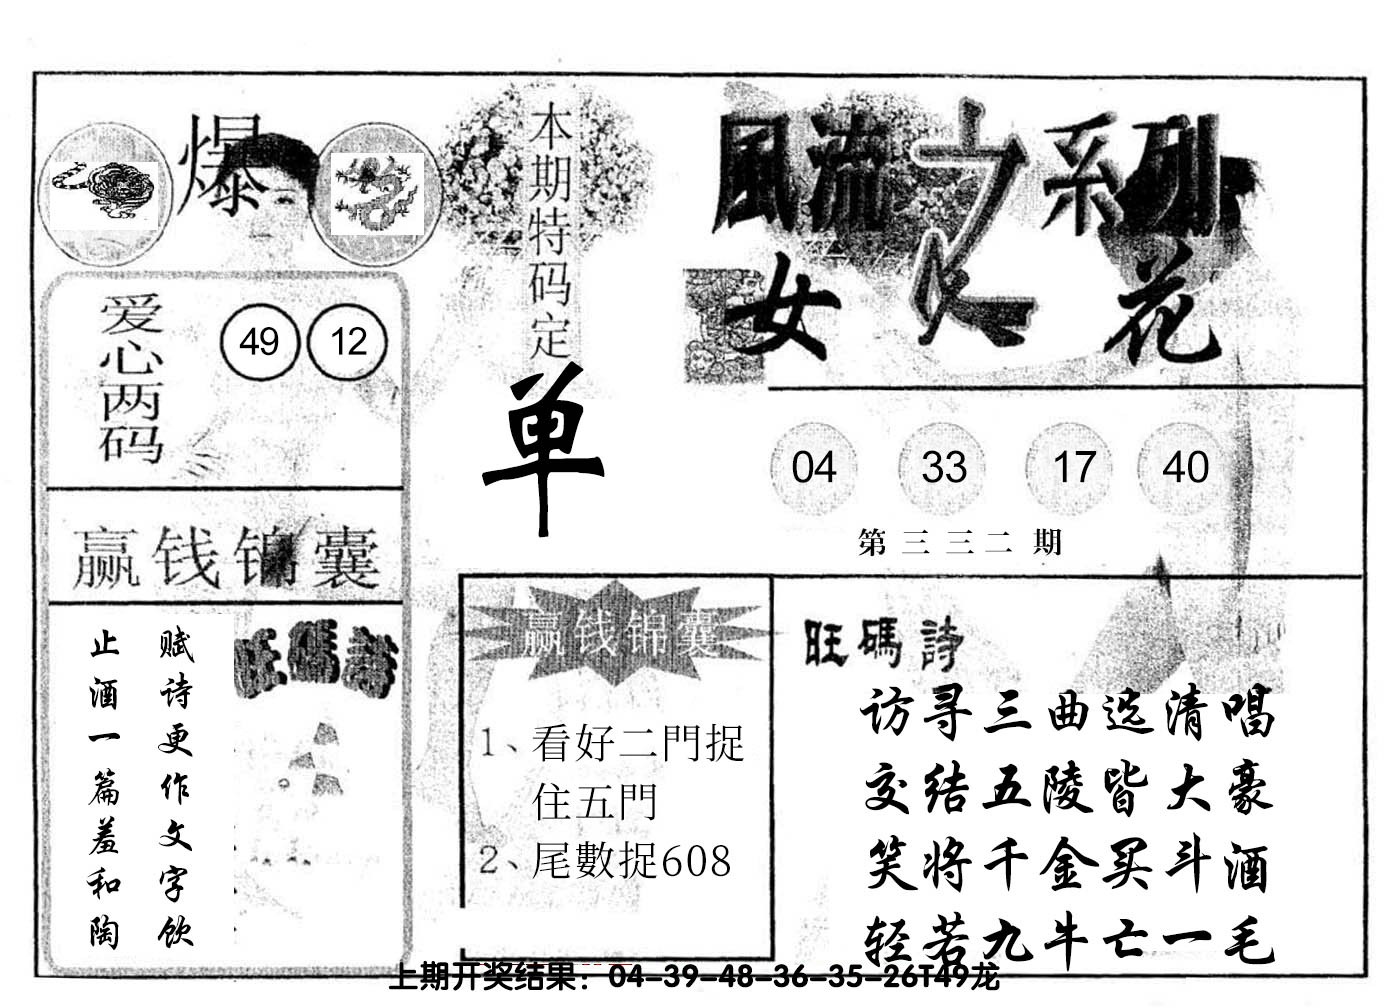 爆
本期特码定
单
風流之系列
女人花
爱心两码
49 12
赢钱锦囊
赋诗更作文字饮
止酒一篇羞和陶
旺碼詩
04 33 17 40
第三三二期
赢钱锦囊
1、看好二門捉
住五門
2、尾數捉608
旺碼詩
访寻三曲选清唱
交结五陵皆大豪
笑将千金买斗酒
轻若九牛亡一毛
上期开奖结果：04-39-48-36-35-26T49龙